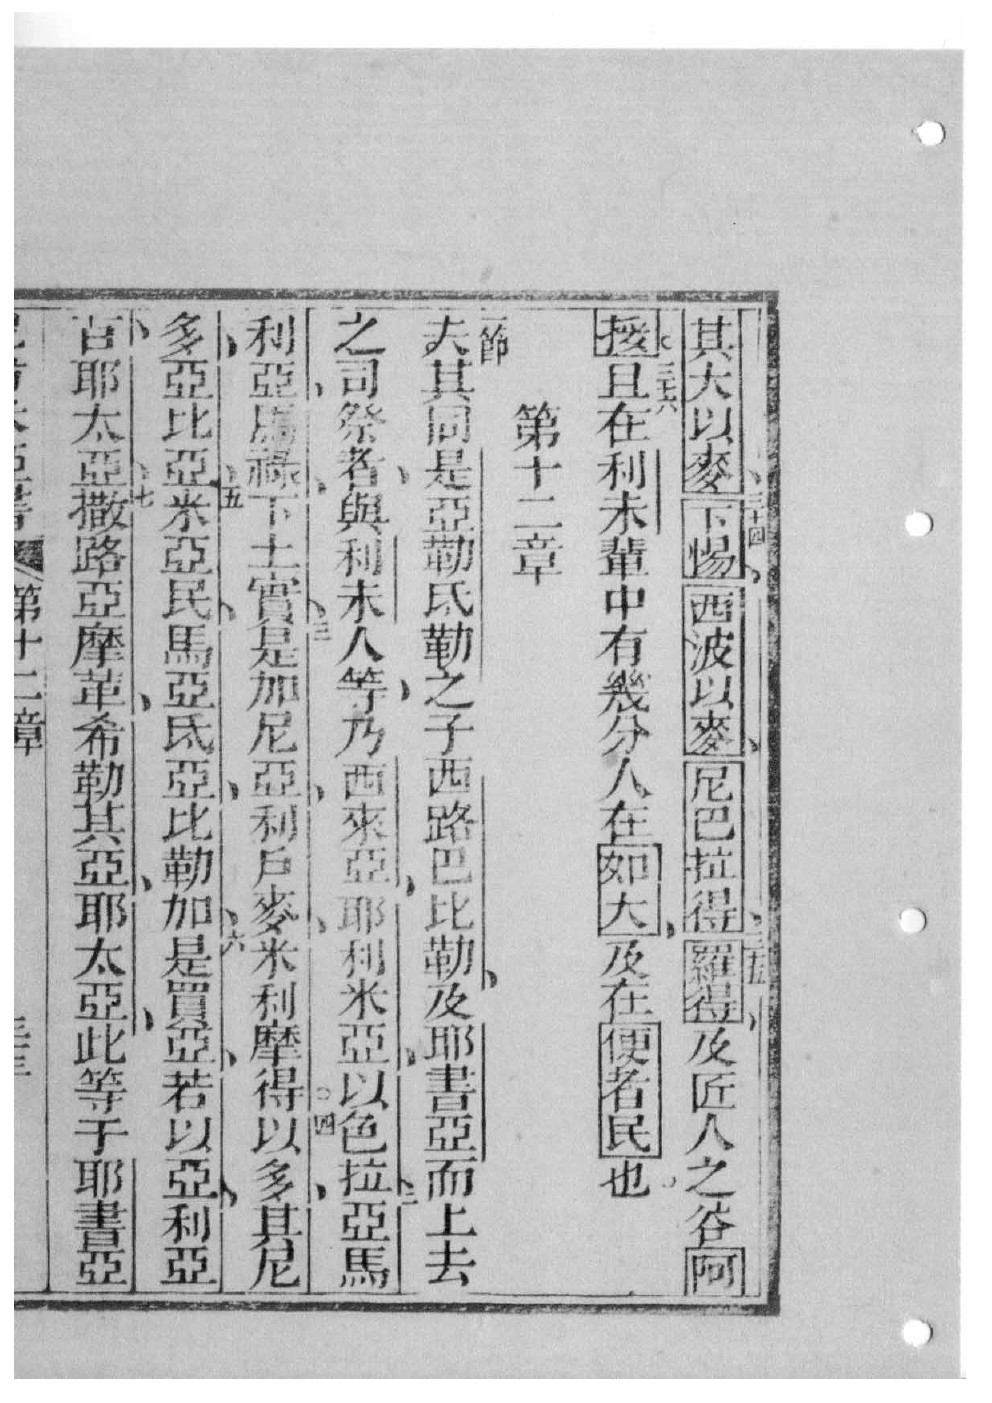 其大以麥三十四下惕西波以麥尼巴拉得三五羅得及匠人之谷阿
挼三六且在利未輩中有幾分人在如大及在便者民也
第十二章
一節夫其同是亞勒氐勒之子西路巴比勒及耶書亞而上去
之司祭者與利未人等乃西來亞耶利米亞以色拉二亞馬
利亞馬祿下土實三是加尼亞利戶麥米利摩得四以多其尼
多亞比亞五米亞民馬亞氐亞比勒加六是買亞若以亞利亞
耶太亞七撒路亞摩革希勒其亞耶太亞此等于耶書亞
第十二章